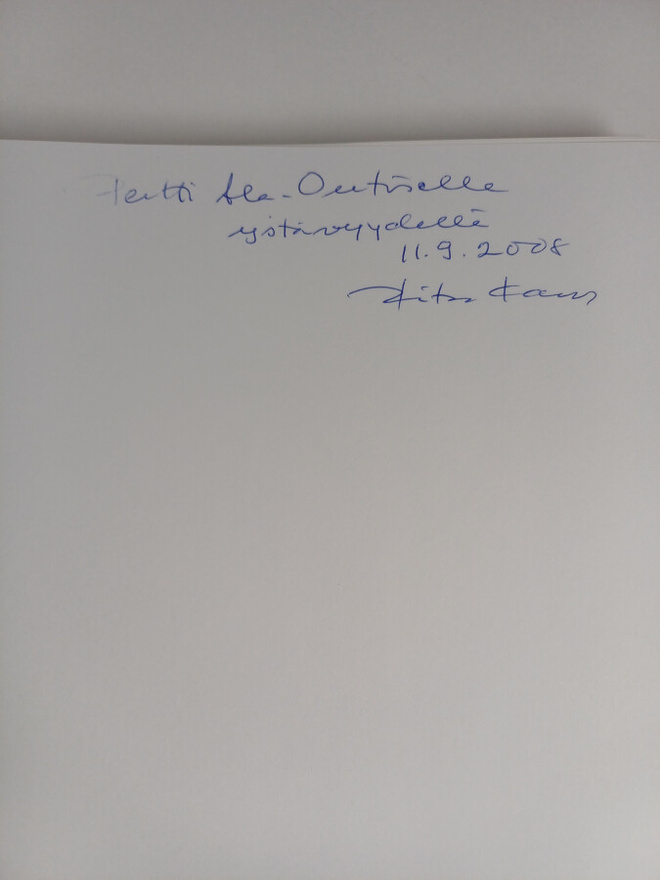 Pertti Ala-Outiselle
ystävyydellä
11.9.2008